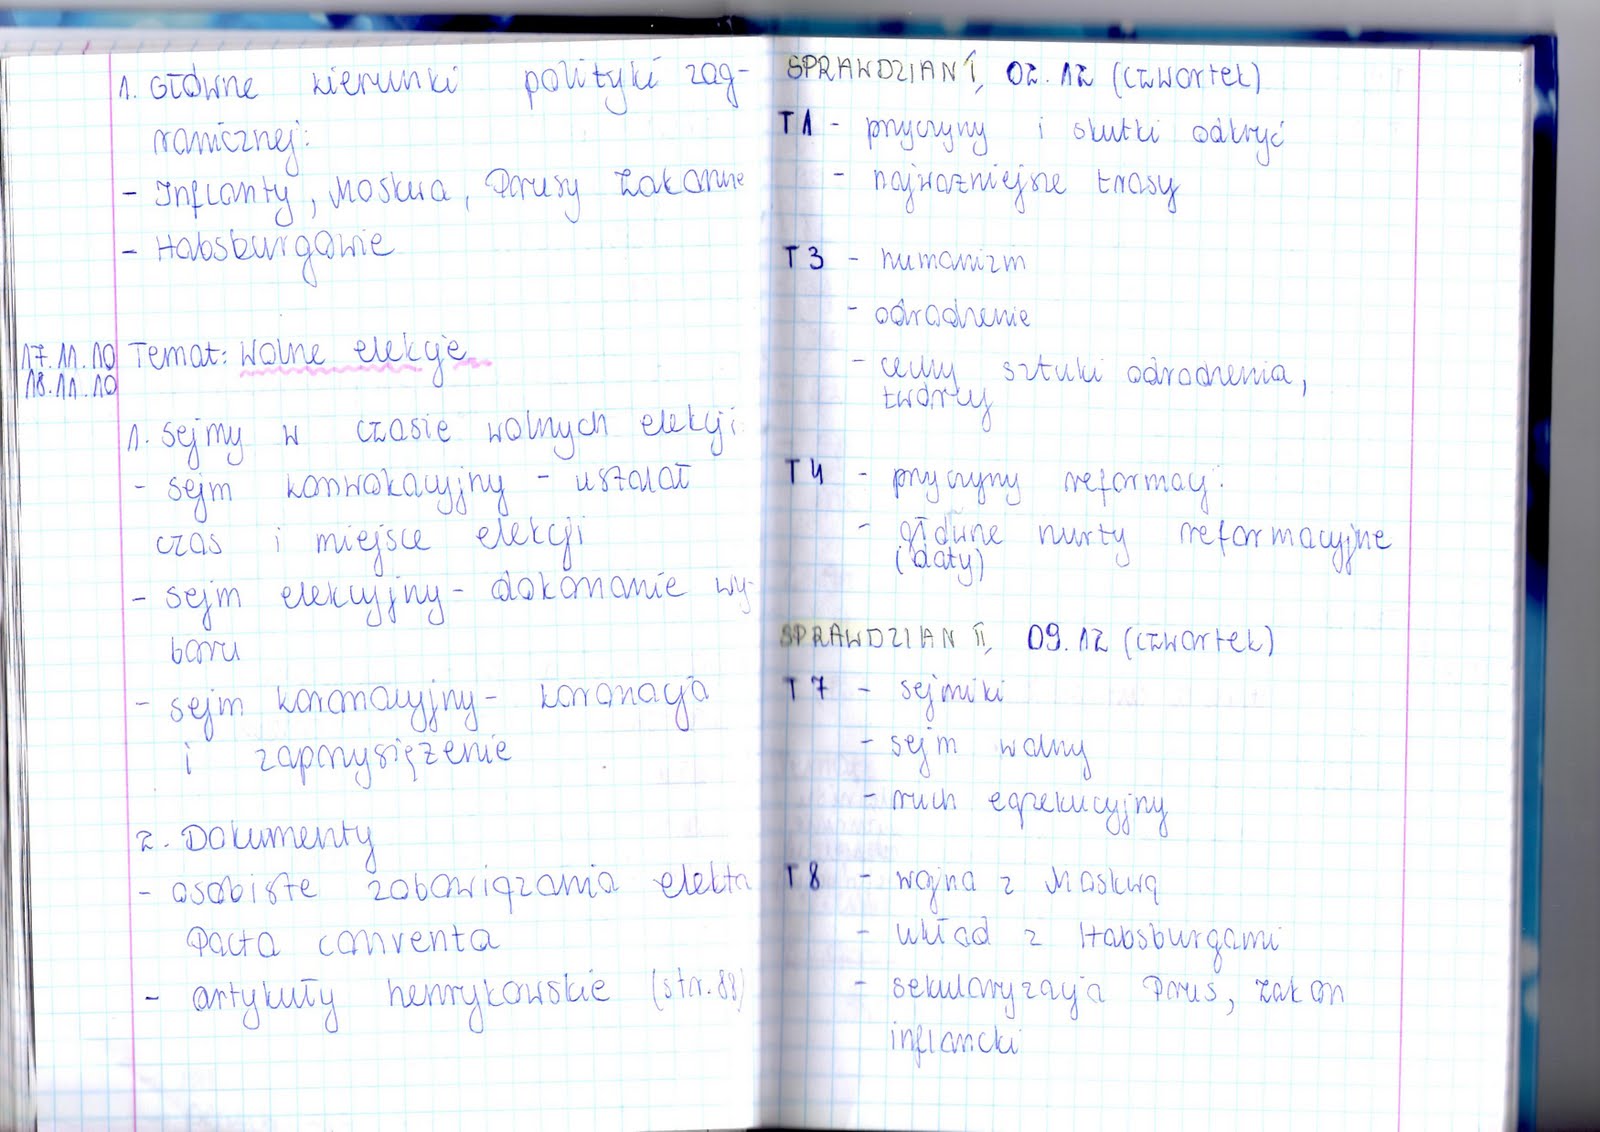 1. Główne kierunki polityki zag-
ranicznej:
- Inflanty, Moskwa, Prusy Zakonne
- Habsburgowie
17.11.10 Temat: Wolne elekcje
18.11.10
1. Sejmy w czasie wolnych elekcji:
- sejm konwokacyjny - ustalał
czas i miejsce elekcji
- sejm elekcyjny - dokonanie wy-
boru
- sejm koronacyjny - koronacja
i zaprzysiężenie
2. Dokumenty
- osobiste zobowiązania elekta
Pacta conventa
- artykuły henrykowskie (str. 88)
SPRAWDZIAN I, 02.12 (czwartek)
T1 - przyczyny i skutki odkryć
- najważniejsze trasy
T3 - humanizm
- odrodzenie
- cechy sztuki odrodzenia,
twórcy
T4 - przyczyny reformacji
- główne nurty reformacyjne
(daty)
SPRAWDZIAN II, 09.12 (czwartek)
T7 - sejmiki
- sejm walny
- ruch egzekucyjny
T8 - wojna z Moskwą
- układ z Habsburgami
- sekularyzacja Prus, Zakon
inflancki